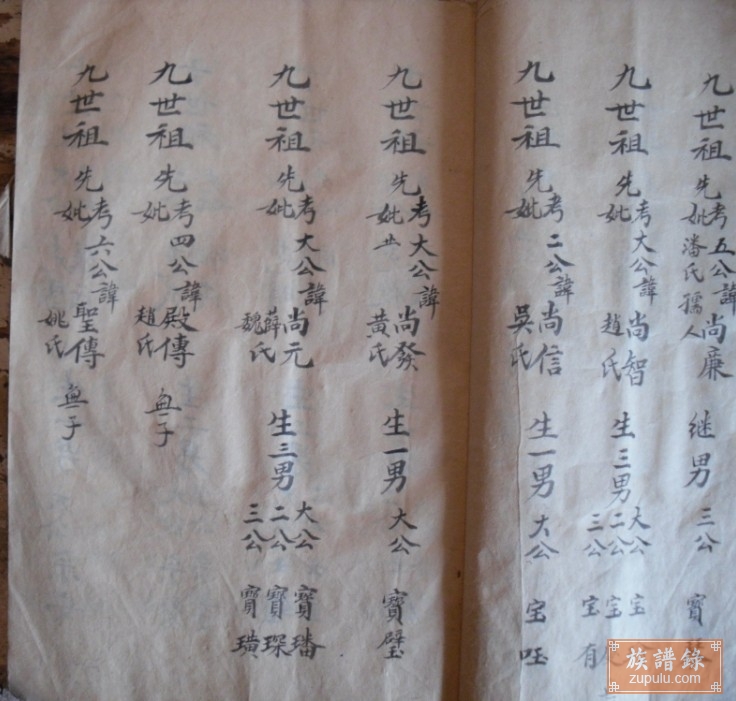 九世祖 先考五公諱尚廉 妣潘氏孺人 继男 三公 寶
九世祖 先考大公諱尚智 妣趙氏 生三男 大公 宝 二公 宝 三公 宝有
九世祖 先考二公諱尚信 妣吳氏 生一男 大公 宝
九世祖 先考大公諱尚發 妣黃氏 生一男 大公 寶璧
九世祖 先考大公諱尚元 妣薛氏魏氏 生三男 大公 寶璠 二公 寶琛 三公 寶璜
九世祖 先考四公諱殿傳 妣趙氏 無子
九世祖 先考六公諱聖傳 妣姚氏 無子
族譜錄
zupulu.com